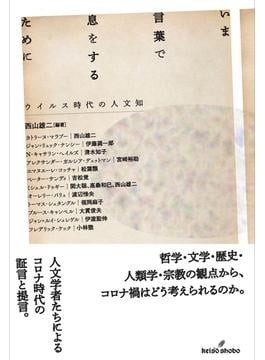 いま
言葉で
息をする
ために
ウイルス時代の人文知
西山雄二[編著]
カトリーヌ・マラブー|西山雄二
ジャン=リュック・ナンシー|伊藤潤一郎
N・キャサリン・ヘイルズ|清水知子
アレクサンダー・ガルシア・デュットマン|宮﨑裕助
エマヌエーレ・コッチャ|松葉類
ペーター・サンディ|吉松覚
ミシェル・ドゥギー|關大聡、髙桑和巳、西山雄二
オーレリー・パリュ|渡辺惟央
トーマス・シュタングル|福岡麻子
ブルース・キャンベル|大貫俊夫
ジャン=ルイ・シュレゲル|伊達聖伸
フレデリック・ケック|小林徹
哲学・文学・歴史・
人類学・宗教の観点から、
コロナ禍はどう考えられるのか。
人文学者たちによる
コロナ時代の
証言と提言。
keiso shobo